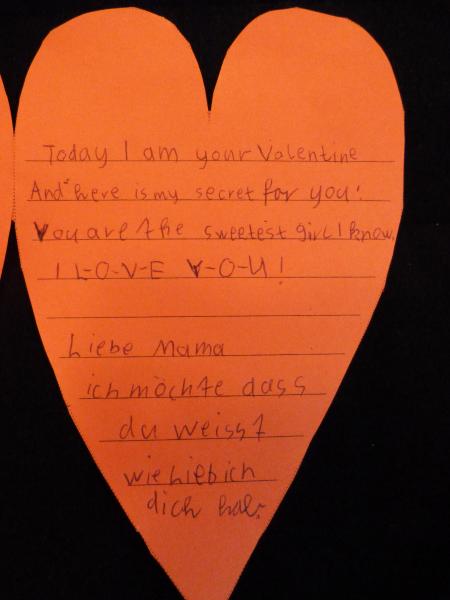 Today I am your Valentine
And here is my secret for you:
You are the sweetest girl I know.
I L-O-V-E Y-O-U!
Liebe Mama
ich möchte dass
du weisst
wie lieb ich
dich hab.